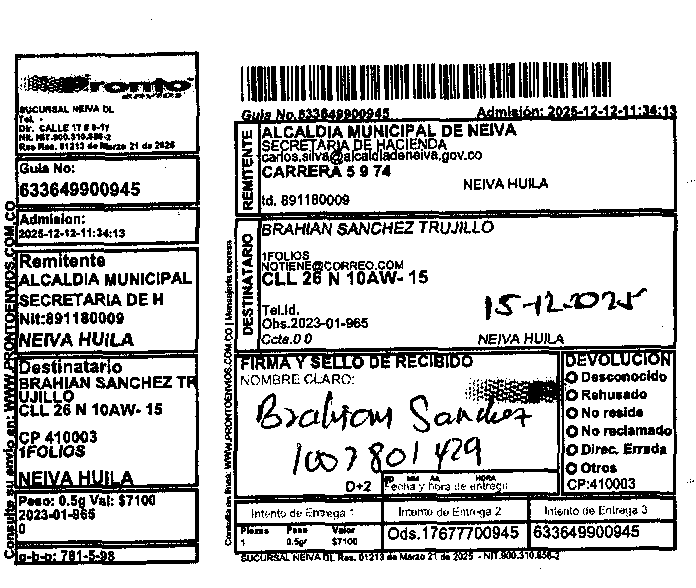 Pronto
envios
SUCURSAL NEIVA DL
Tel. -
Dir. CALLE 17 # 8-17
Nit. NIT.900.310.856-2
Res Res. 01213 de Marzo 21 de 2025
Guia No:
633649900945
Admision:
2025-12-12-11:34:13
Remitente
ALCALDIA MUNICIPAL
SECRETARIA DE H
Nit:891180009
NEIVA HUILA
Destinatario
BRAHIAN SANCHEZ TR
UJILLO
CLL 26 N 10AW- 15
CP 410003
1FOLIOS
NEIVA HUILA
Peso: 0.5g Val: $7100
2023-01-965
0
g-b-o: 781-5-98
Consulte su envio en: WWW.PRONTOENVIOS.COM.CO
Guia No.633649900945 Admisión: 2025-12-12-11:34:13
REMITENTE
ALCALDIA MUNICIPAL DE NEIVA
SECRETARIA DE HACIENDA
carlos.silva@alcaldianeiva.gov.co
CARRERA 5 9 74
NEIVA HUILA
Id. 891180009
DESTINATARIO
BRAHIAN SANCHEZ TRUJILLO
1FOLIOS
NOTIENE@CORREO.COM
CLL 26 N 10AW- 15
15-12-2025
Tel.Id.
Obs.2023-01-965
Ccta.0 0
NEIVA HUILA
FIRMA Y SELLO DE RECIBIDO
NOMBRE CLARO:
Brahian Sanchez
1007801429
D+2
DD MM AA HORA
Fecha y hora de entrega
DEVOLUCION
Desconocido
Rehusado
No reside
No reclamado
Direc. Errada
Otros
CP:410003
Intento de Entrega 1 Intento de Entrega 2 Intento de Entrega 3
Piezas Peso Valor
1 0.5gr $7100
Ods.17677700945 633649900945
SUCURSAL NEIVA DL Res. 01213 de Marzo 21 de 2025 - NIT.900.310.856-2